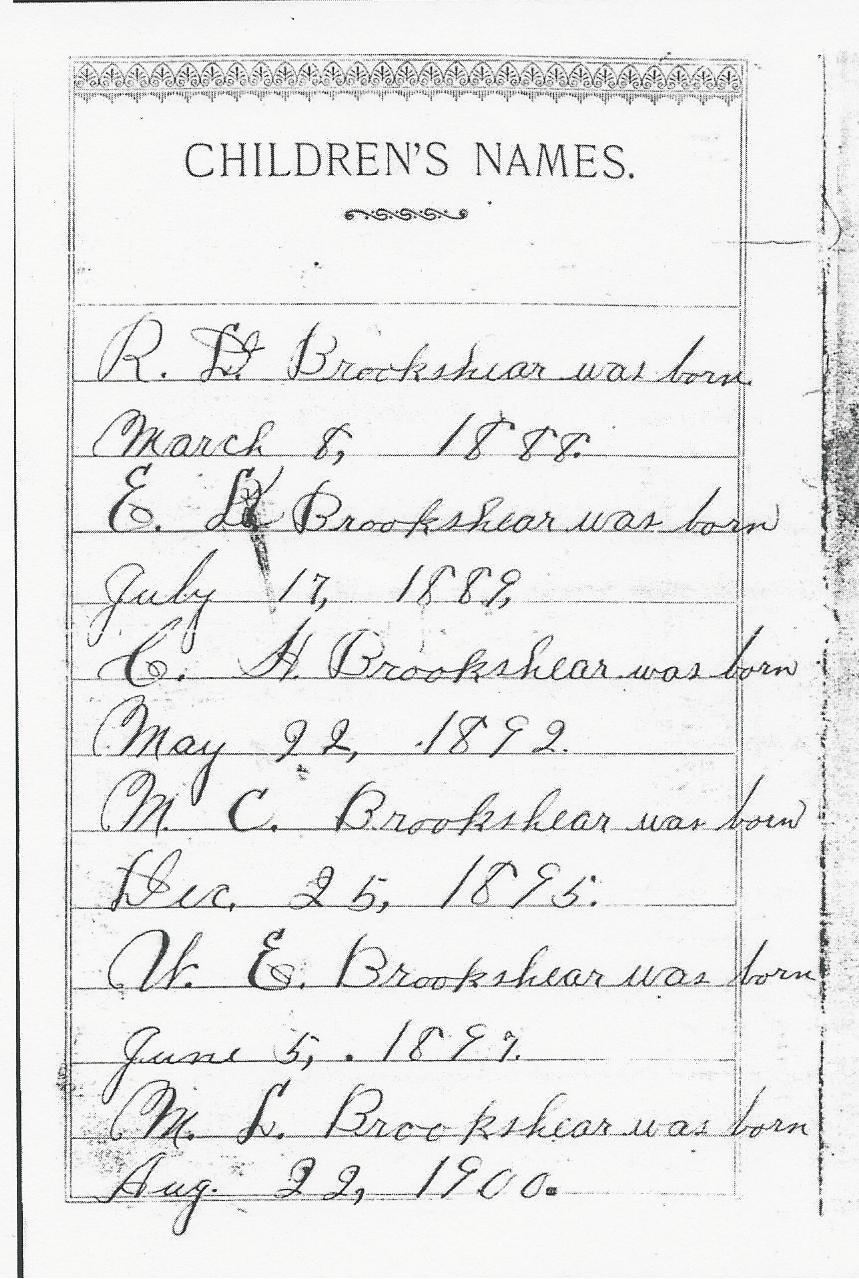 CHILDREN'S NAMES.
R. Brookshear was born.
March 8, 1888.
E. Brookshear was born
July 17, 1889,
C. H. Brookshear was born
May 22, 1892.
M. C. Brookshear was born
Dec. 25, 1895.
W. E. Brookshear was born
June 5, 1897.
M. L. Brookshear was born
Aug. 22, 1900.